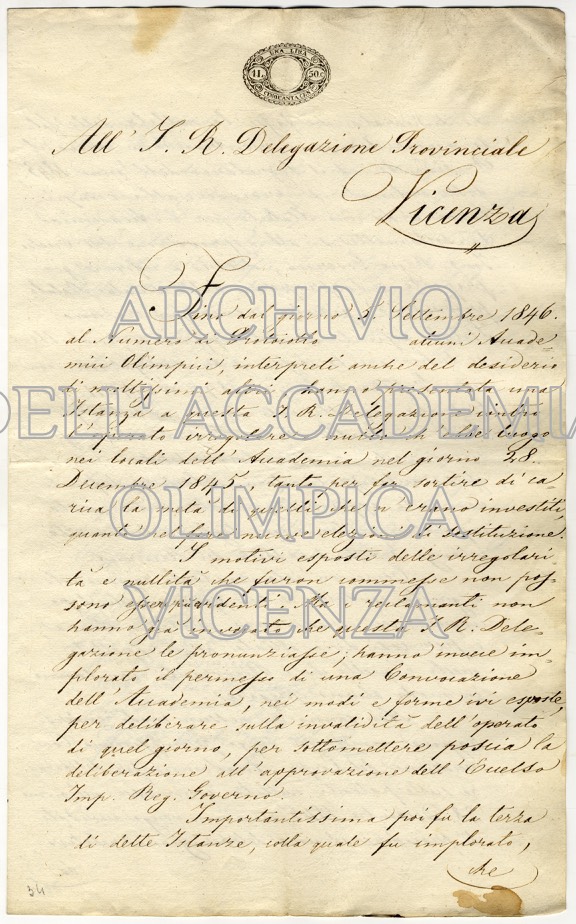 UNA LIRA
1L. 50c.
CINQUANTA CEN.
All' I. R. Delegazione Provinciale
Vicenza
Fino dal giorno Settembre 1846.
al Numero di Protocollo alcuni Accade=
mici Olimpici, interpreti anche del desiderio
di moltissimi altri hanno presentata una
Istanza a questa I. R. Delegazione
l'operato irregolare nullo ch' ebbe luogo
nei locali dell' Accademia nel giorno 28.
Decembre 1845, tanto per far sortire di ca=
rica la metà di quelli che n' erano investiti,
quanto nel fare nuove elezioni di sostituzione.
I motivi esposti delle irregolari=
tà e nullità che furon commesse non pos=
sono esser più evidenti. Ma i reclamanti non
hanno già invocato che questa I. R. Dele=
gazione le pronunziasse; hanno invece im=
plorato il permesso di una Convocazione
dell' Accademia, nei modi e forme ivi esposte,
per deliberare sulla invalidità dell' operato
di quel giorno, per sottomettere poscia la
deliberazione all' approvazione dell' Eccelso
Imp. Reg. Governo.
Importantissima poi fu la terza
di dette Istanze, colla quale fu implorato,
che
34
ARCHIVIO
DELL' ACCADEMIA
OLIMPICA
VICENZA